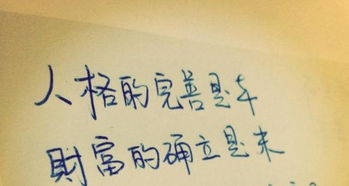 人格的完善是本
財富的确立是末